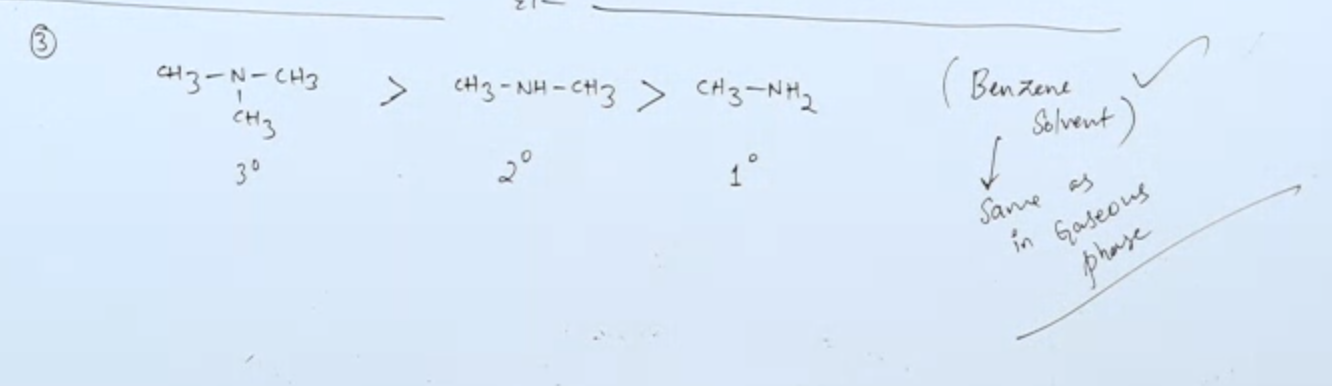 ③
CH3-N-CH3 > CH3-NH-CH3 > CH3-NH2 (Benzene
CH3 Solvent)
3° 2° 1°
↓
Same as
in Gaseous
phase